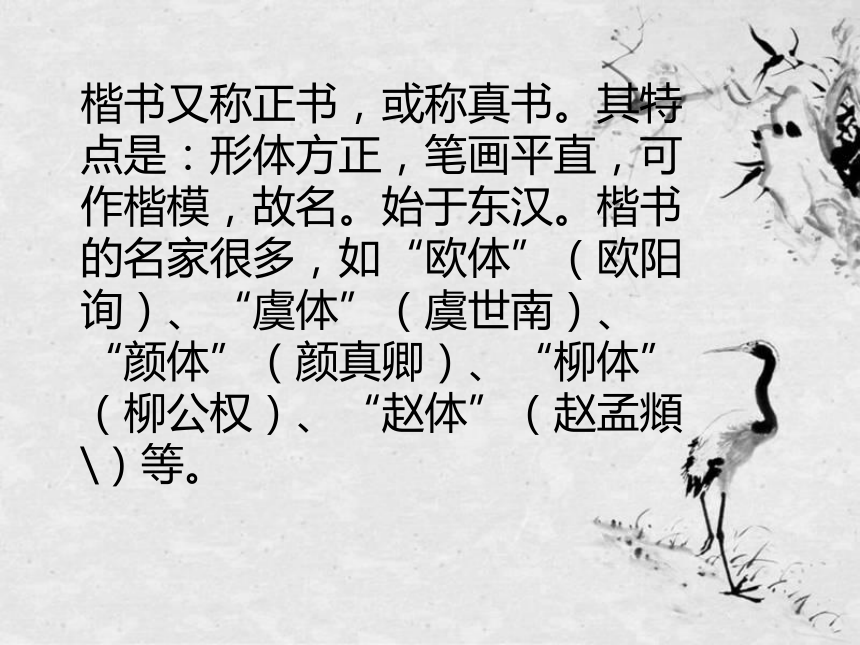 楷书又称正书，或称真书。其特
点是：形体方正，笔画平直，可
作楷模，故名。始于东汉。楷书
的名家很多，如“欧体”（欧阳
询）、“虞体”（虞世南）、
“颜体”（颜真卿）、“柳体”
（柳公权）、“赵体”（赵孟頫
\）等。